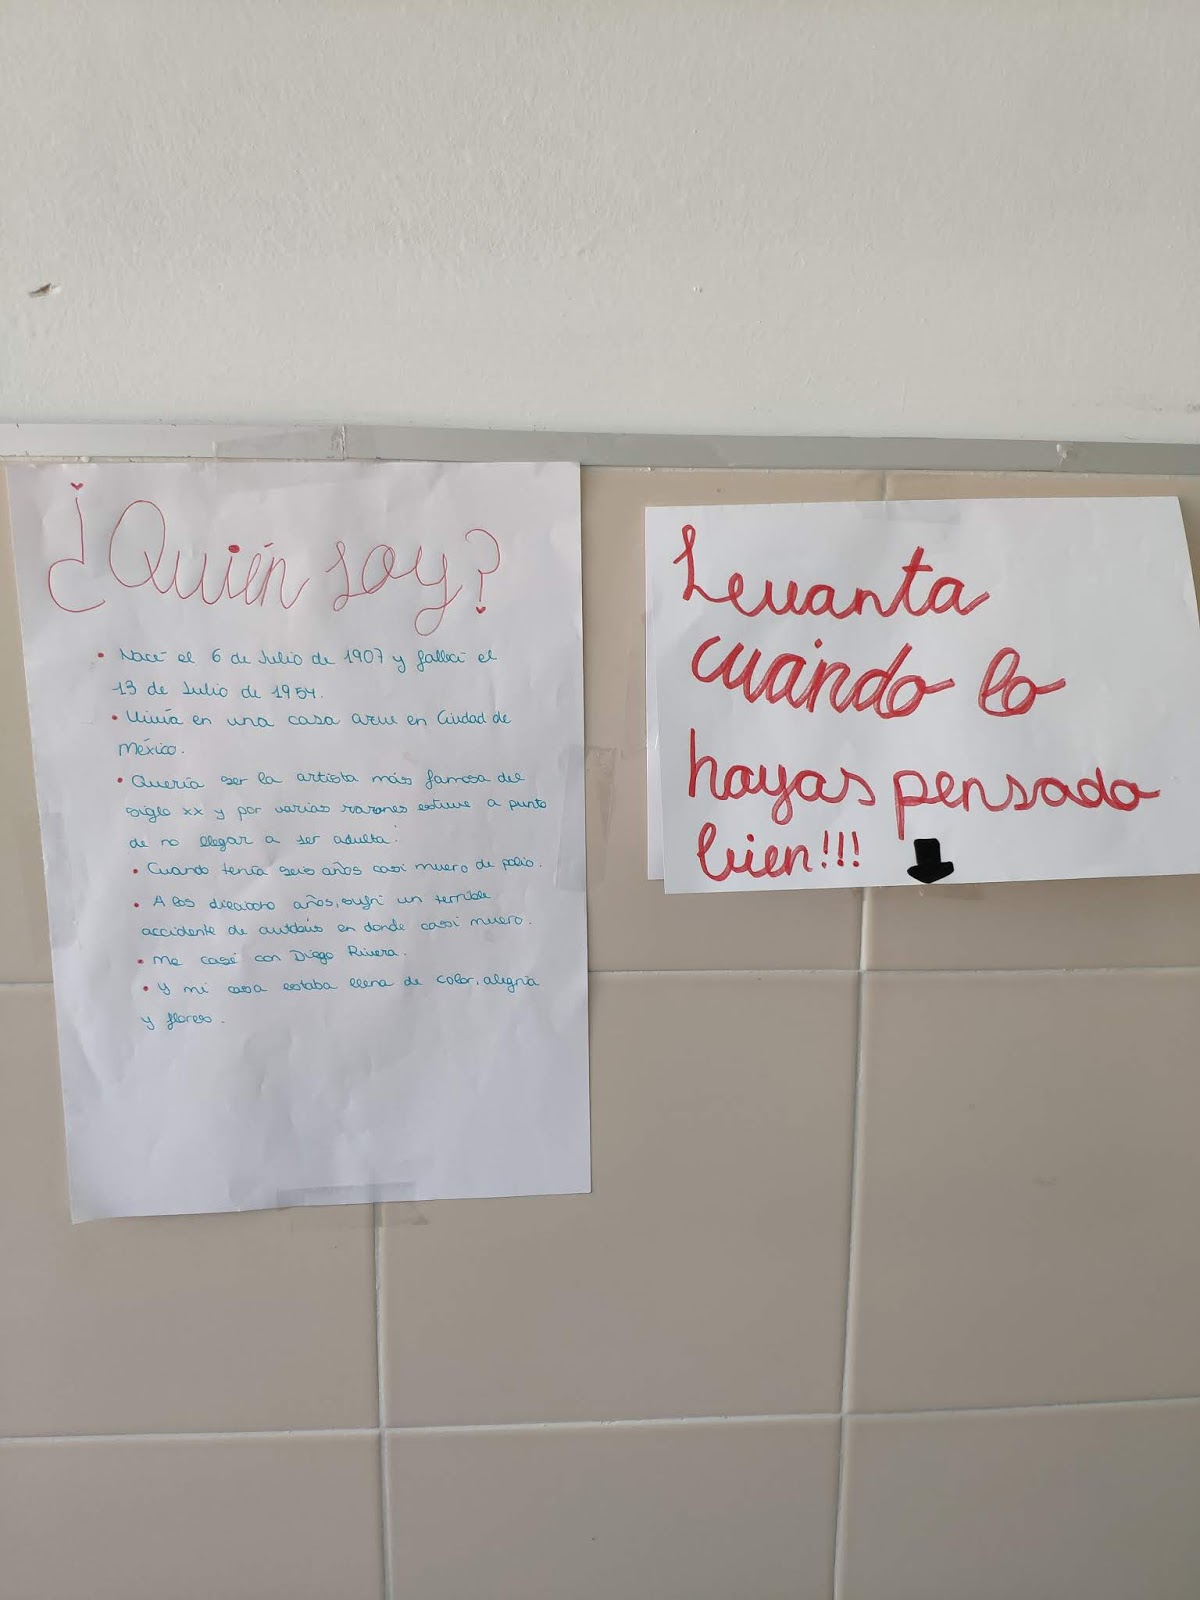 ¿Quién soy?
• Nací el 6 de Julio de 1907 y fallecí el
13 de Julio de 1954.
• Vivía en una casa azul en Ciudad de
México.
• Quería ser la artista más famosa del
siglo xx y por varias razones estuve a punto
de no llegar a ser adulta.
• Cuando tenía seis años casi muero de polio.
• A los dieciocho años, sufrí un terrible
accidente de autobús en donde casi muero.
• Me casé con Diego Rivera.
• Y mi casa estaba llena de color, alegría
y flores.
Levanta
cuándo lo
hayas pensado
bien!!!